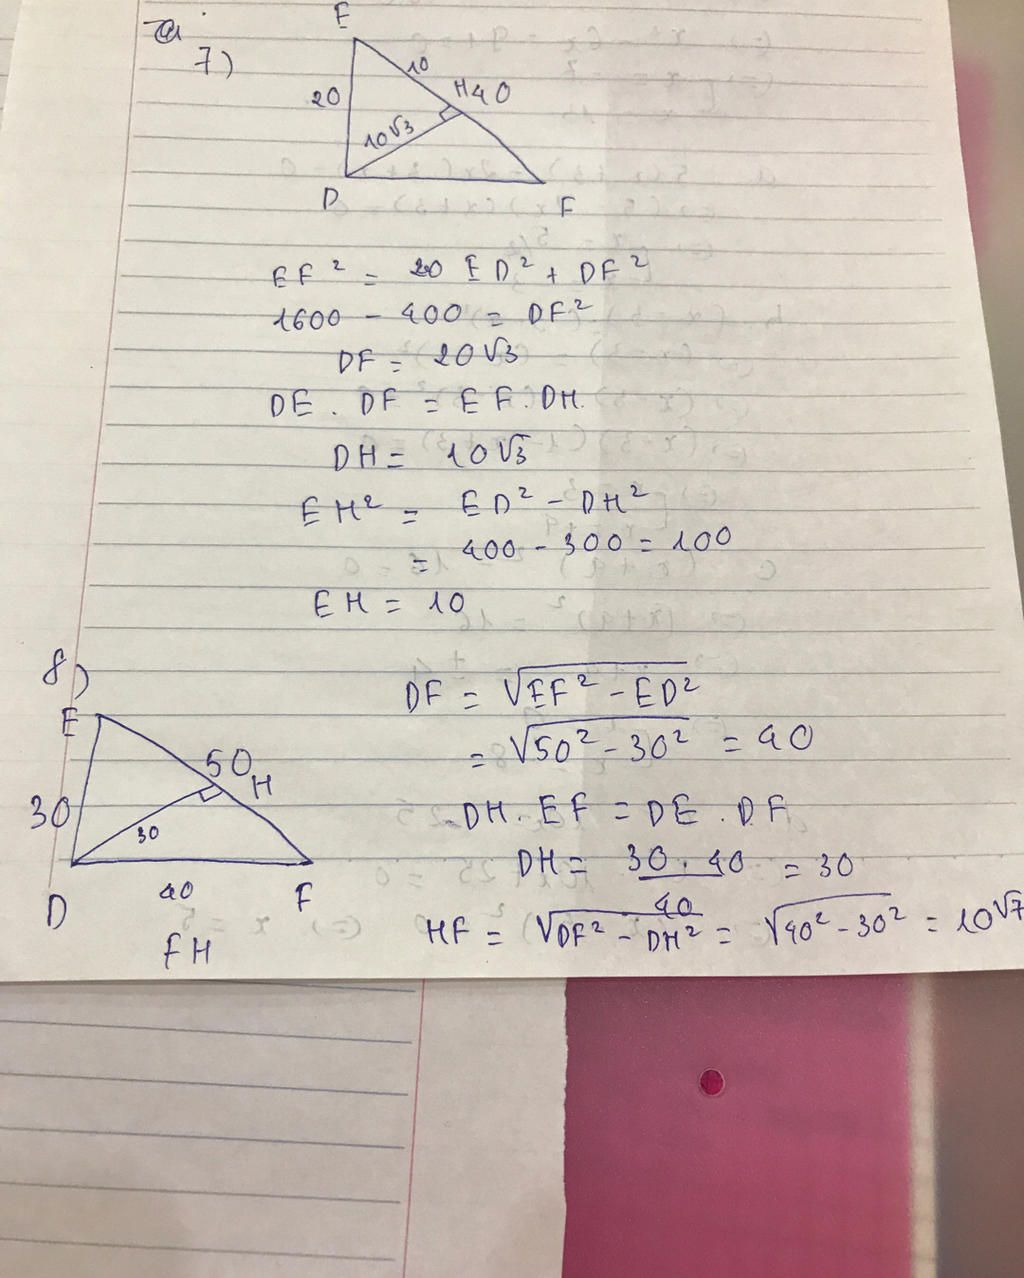 a
7)
E
10
20
H 40
10√3
D
F
EF² = 20 ED² + DF²
1600 - 400 = DF²
DF = 20√3
DE . DF = EF . DH.
DH = 10√3
EH² = ED² - DH²
= 400 - 300 = 100
EH = 10
8)
E
50
H
30
30
D
40
F
FH
DF = √EF² - ED²
= √50² - 30² = 40
DH . EF = DE . DF
DH = 30 . 40 / 40 = 30
HF = √DF² - DH² = √40² - 30² = 10√7